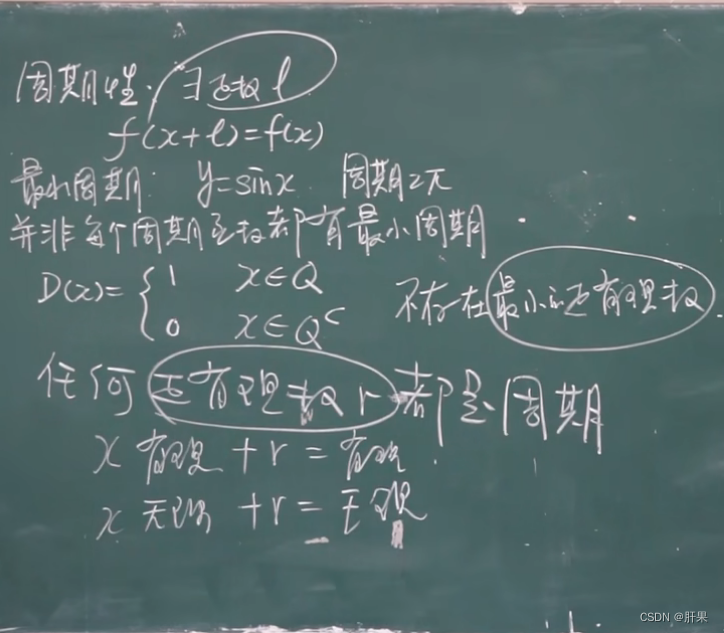 周期性. ∃正数 l
f(x+l)=f(x)
最小周期: y=sinx 周期2π
并非每个周期函数都有最小周期
D(x)={1 x∈Q
0 x∈Qᶜ
不存在最小正有理数.
任何正有理数 r 都是周期
x 有理 +r = 有理.
x 无理 +r = 无理
CSDN @肝果